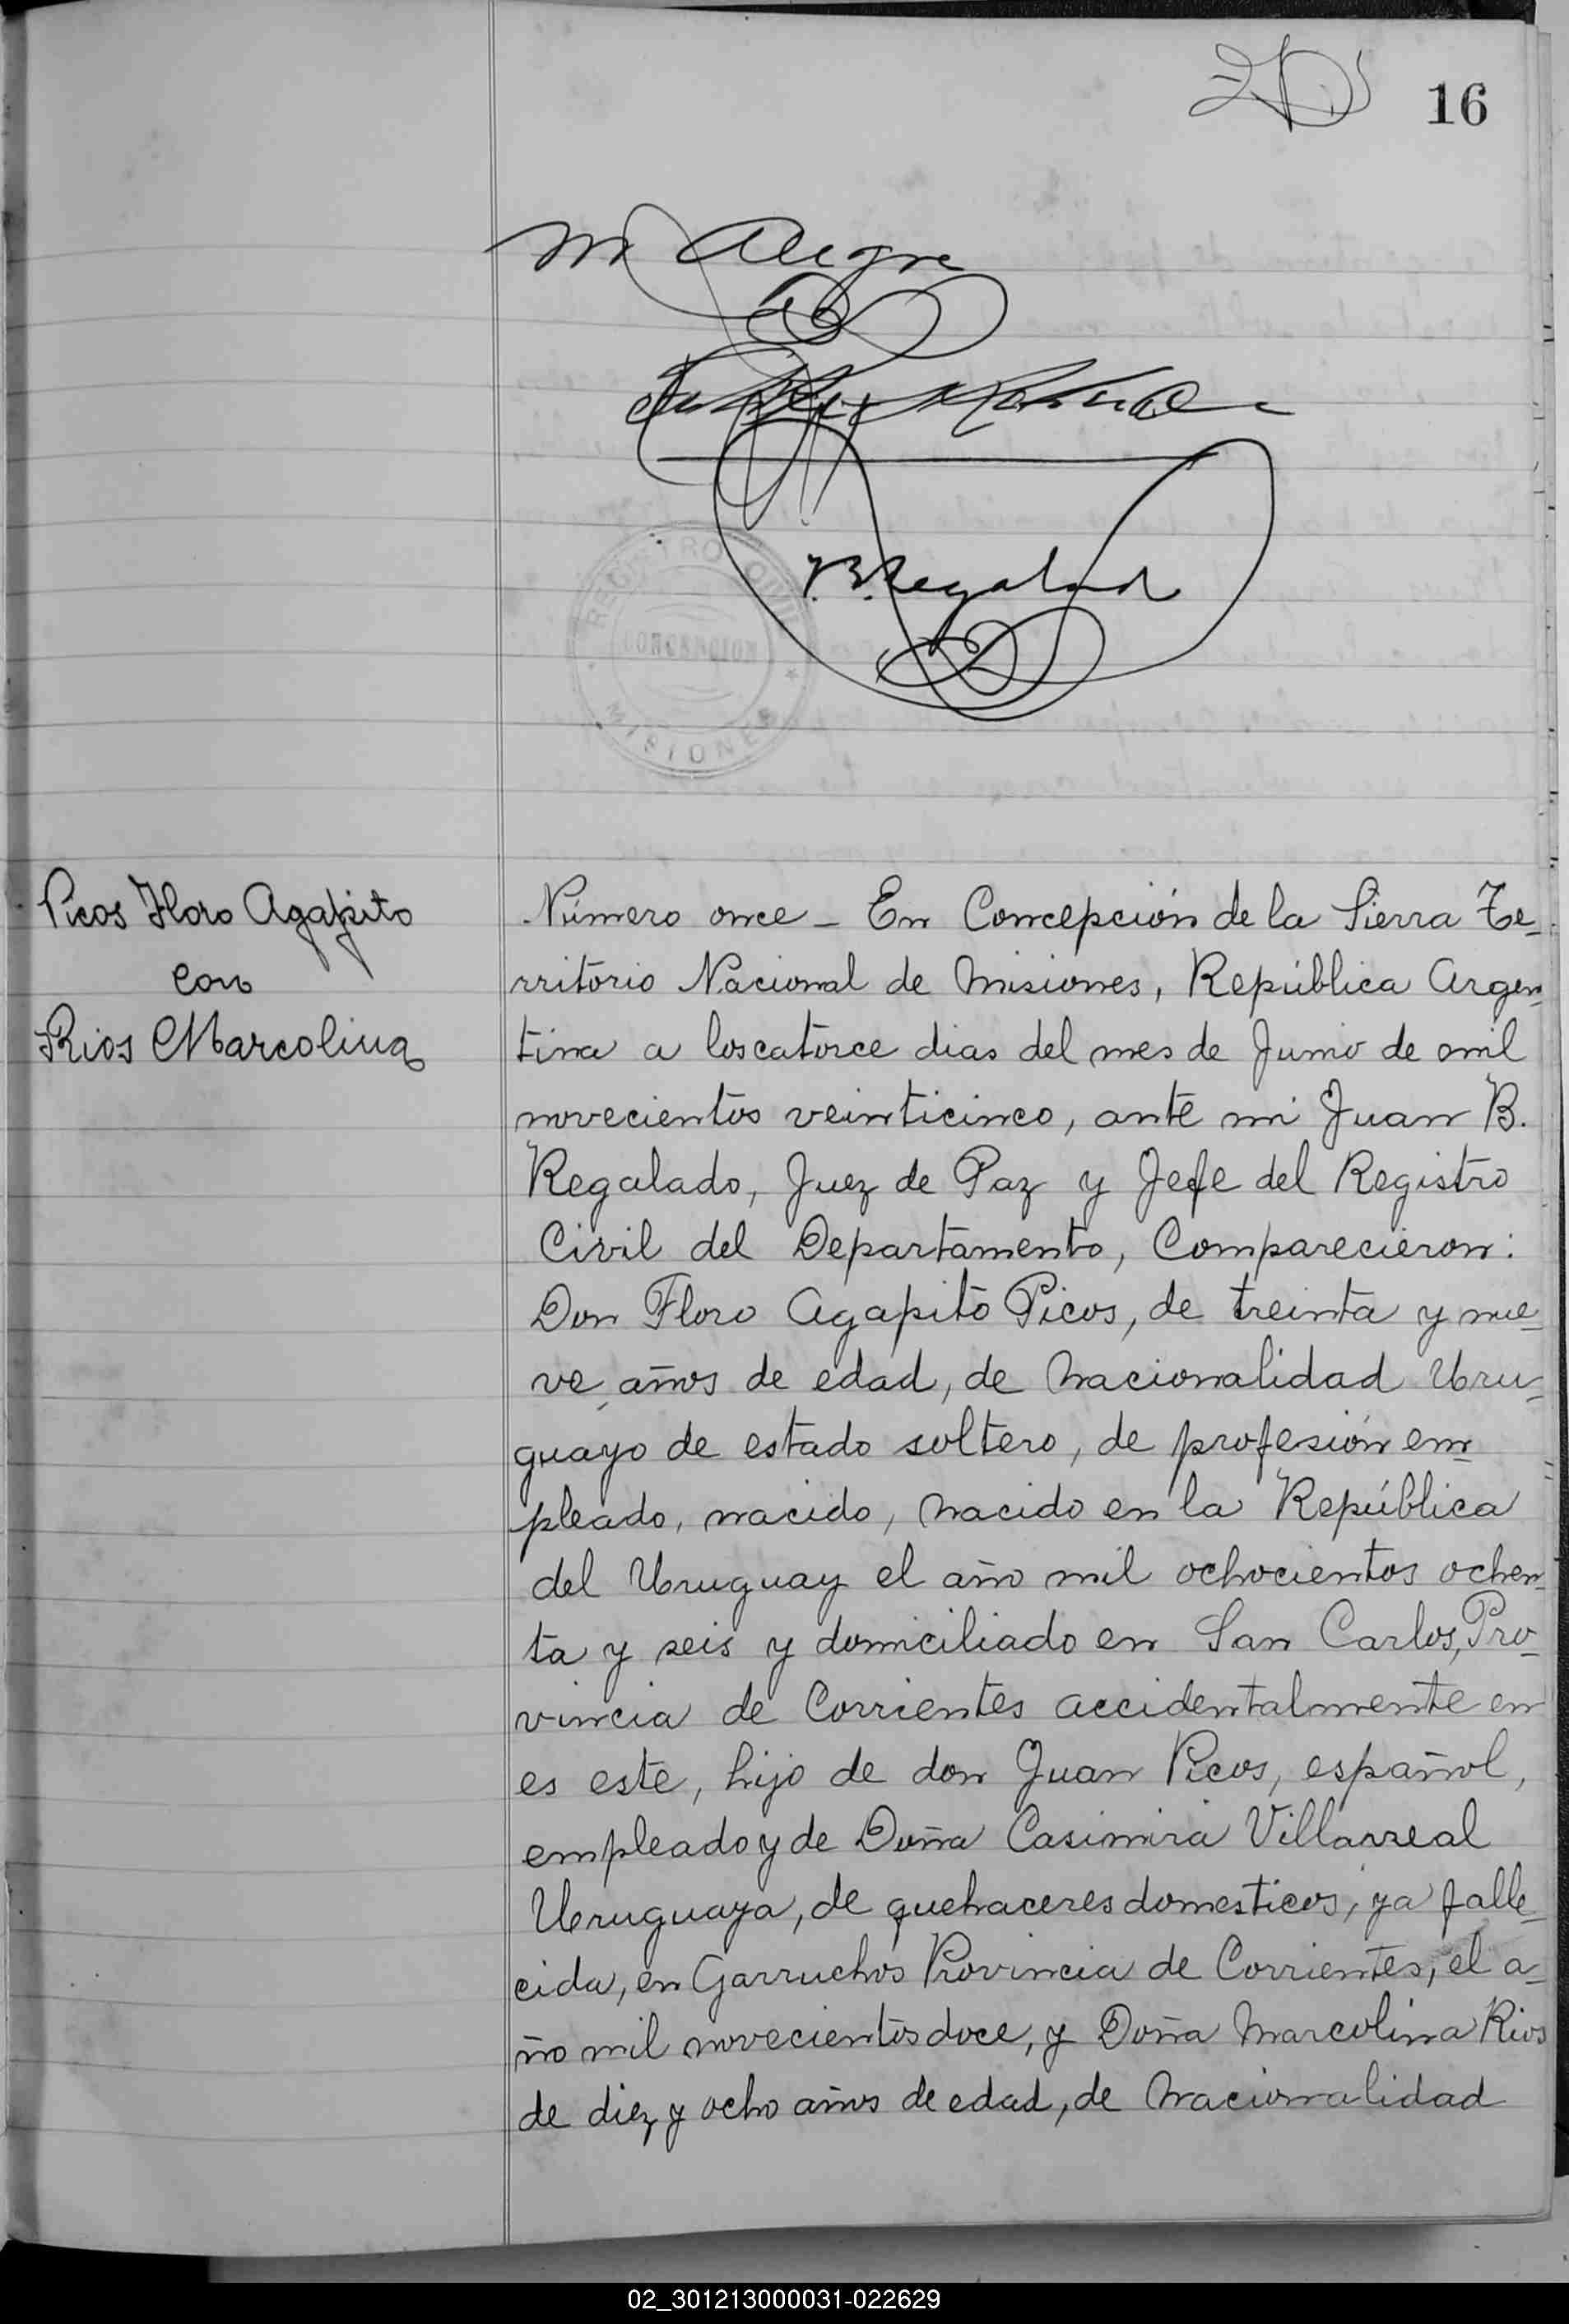 16
M Alegre
J.B. Regalado
REGISTRO CIVIL
CONCEPCION
MISIONES
Picos Floro Agapito
con
Rios Marcolina
Número once – En Concepción de la Sierra Te-
rritorio Nacional de Misiones, República Argen-
tina a los catorce dias del mes de Junio de mil
novecientos veinticinco, ante mi Juan B.
Regalado, Juez de Paz y Jefe del Registro
Civil del Departamento, Comparecieron:
Don Floro Agapito Picos, de treinta y nue-
ve años de edad, de nacionalidad Uru-
guayo de estado soltero, de profesión em-
pleado, nacido, nacido en la República
del Uruguay el año mil ochocientos ochen-
ta y seis y domiciliado en San Carlos, Pro-
vincia de Corrientes accidentalmente en
es este, hijo de don Juan Picos, español,
empleado y de Doña Casimira Villarreal
Uruguaya, de quehaceres domesticos, ya falle-
cida, en Garruchos Provincia de Corrientes, el a-
ño mil novecientos doce, y Doña Marcolina Rios
de diez y ocho años de edad, de nacionalidad
02_301213000031-022629